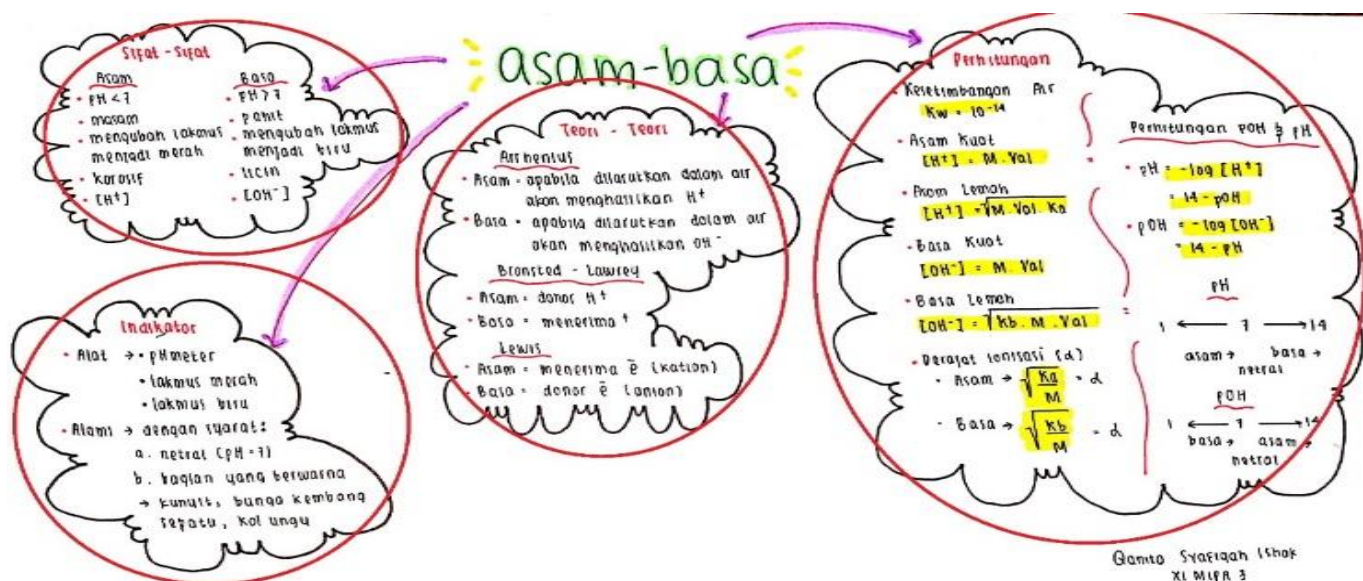 asam-basa
Sifat - Sifat
Asam
• PH < 7
• masam
• mengubah lakmus
menjadi merah
• korosif
• [H+]
Basa
• PH > 7
• pahit
• mengubah lakmus
menjadi biru
• licin
• [OH⁻]
Indikator
• Alat → • pHmeter
• lakmus merah
• lakmus biru
• Alami → dengan syarat:
a. netral (pH = 7)
b. bagian yang berwarna
→ kunyit, bunga kembang
sepatu, kol ungu
Teori - Teori
Arrhenius
• Asam = apabila dilarutkan dalam air
akan menghasilkan H+
• Basa = apabila dilarutkan dalam air
akan menghasilkan OH⁻
Bronsted - Lowrey
• Asam = donor H+
• Basa = menerima +
Lewis
• Asam = menerima ē (kation)
• Basa = donor ē (anion)
Perhitungan
• Kesetimbangan Air
Kw = 10⁻¹⁴
• Asam Kuat
[H+] = M . Val
• Asam Lemah
[H+] = √M . Val . Ka
• Basa Kuat
[OH⁻] = M . Val
• Basa Lemah
[OH⁻] = √Kb . M . Val
• Derajat Ionisasi (α)
- Asam → √Ka/M = α
- Basa → √Kb/M = α
Perhitungan POH & PH
• pH = -log [H+]
= 14 - pOH
• pOH = -log [OH⁻]
= 14 - pH
pH
1 ← 7 → 14
asam→ basa→
netral
pOH
1 ← 7 → 14
basa→ asam→
netral
Qanita Syafiqah Ishak
XI MIPA 3